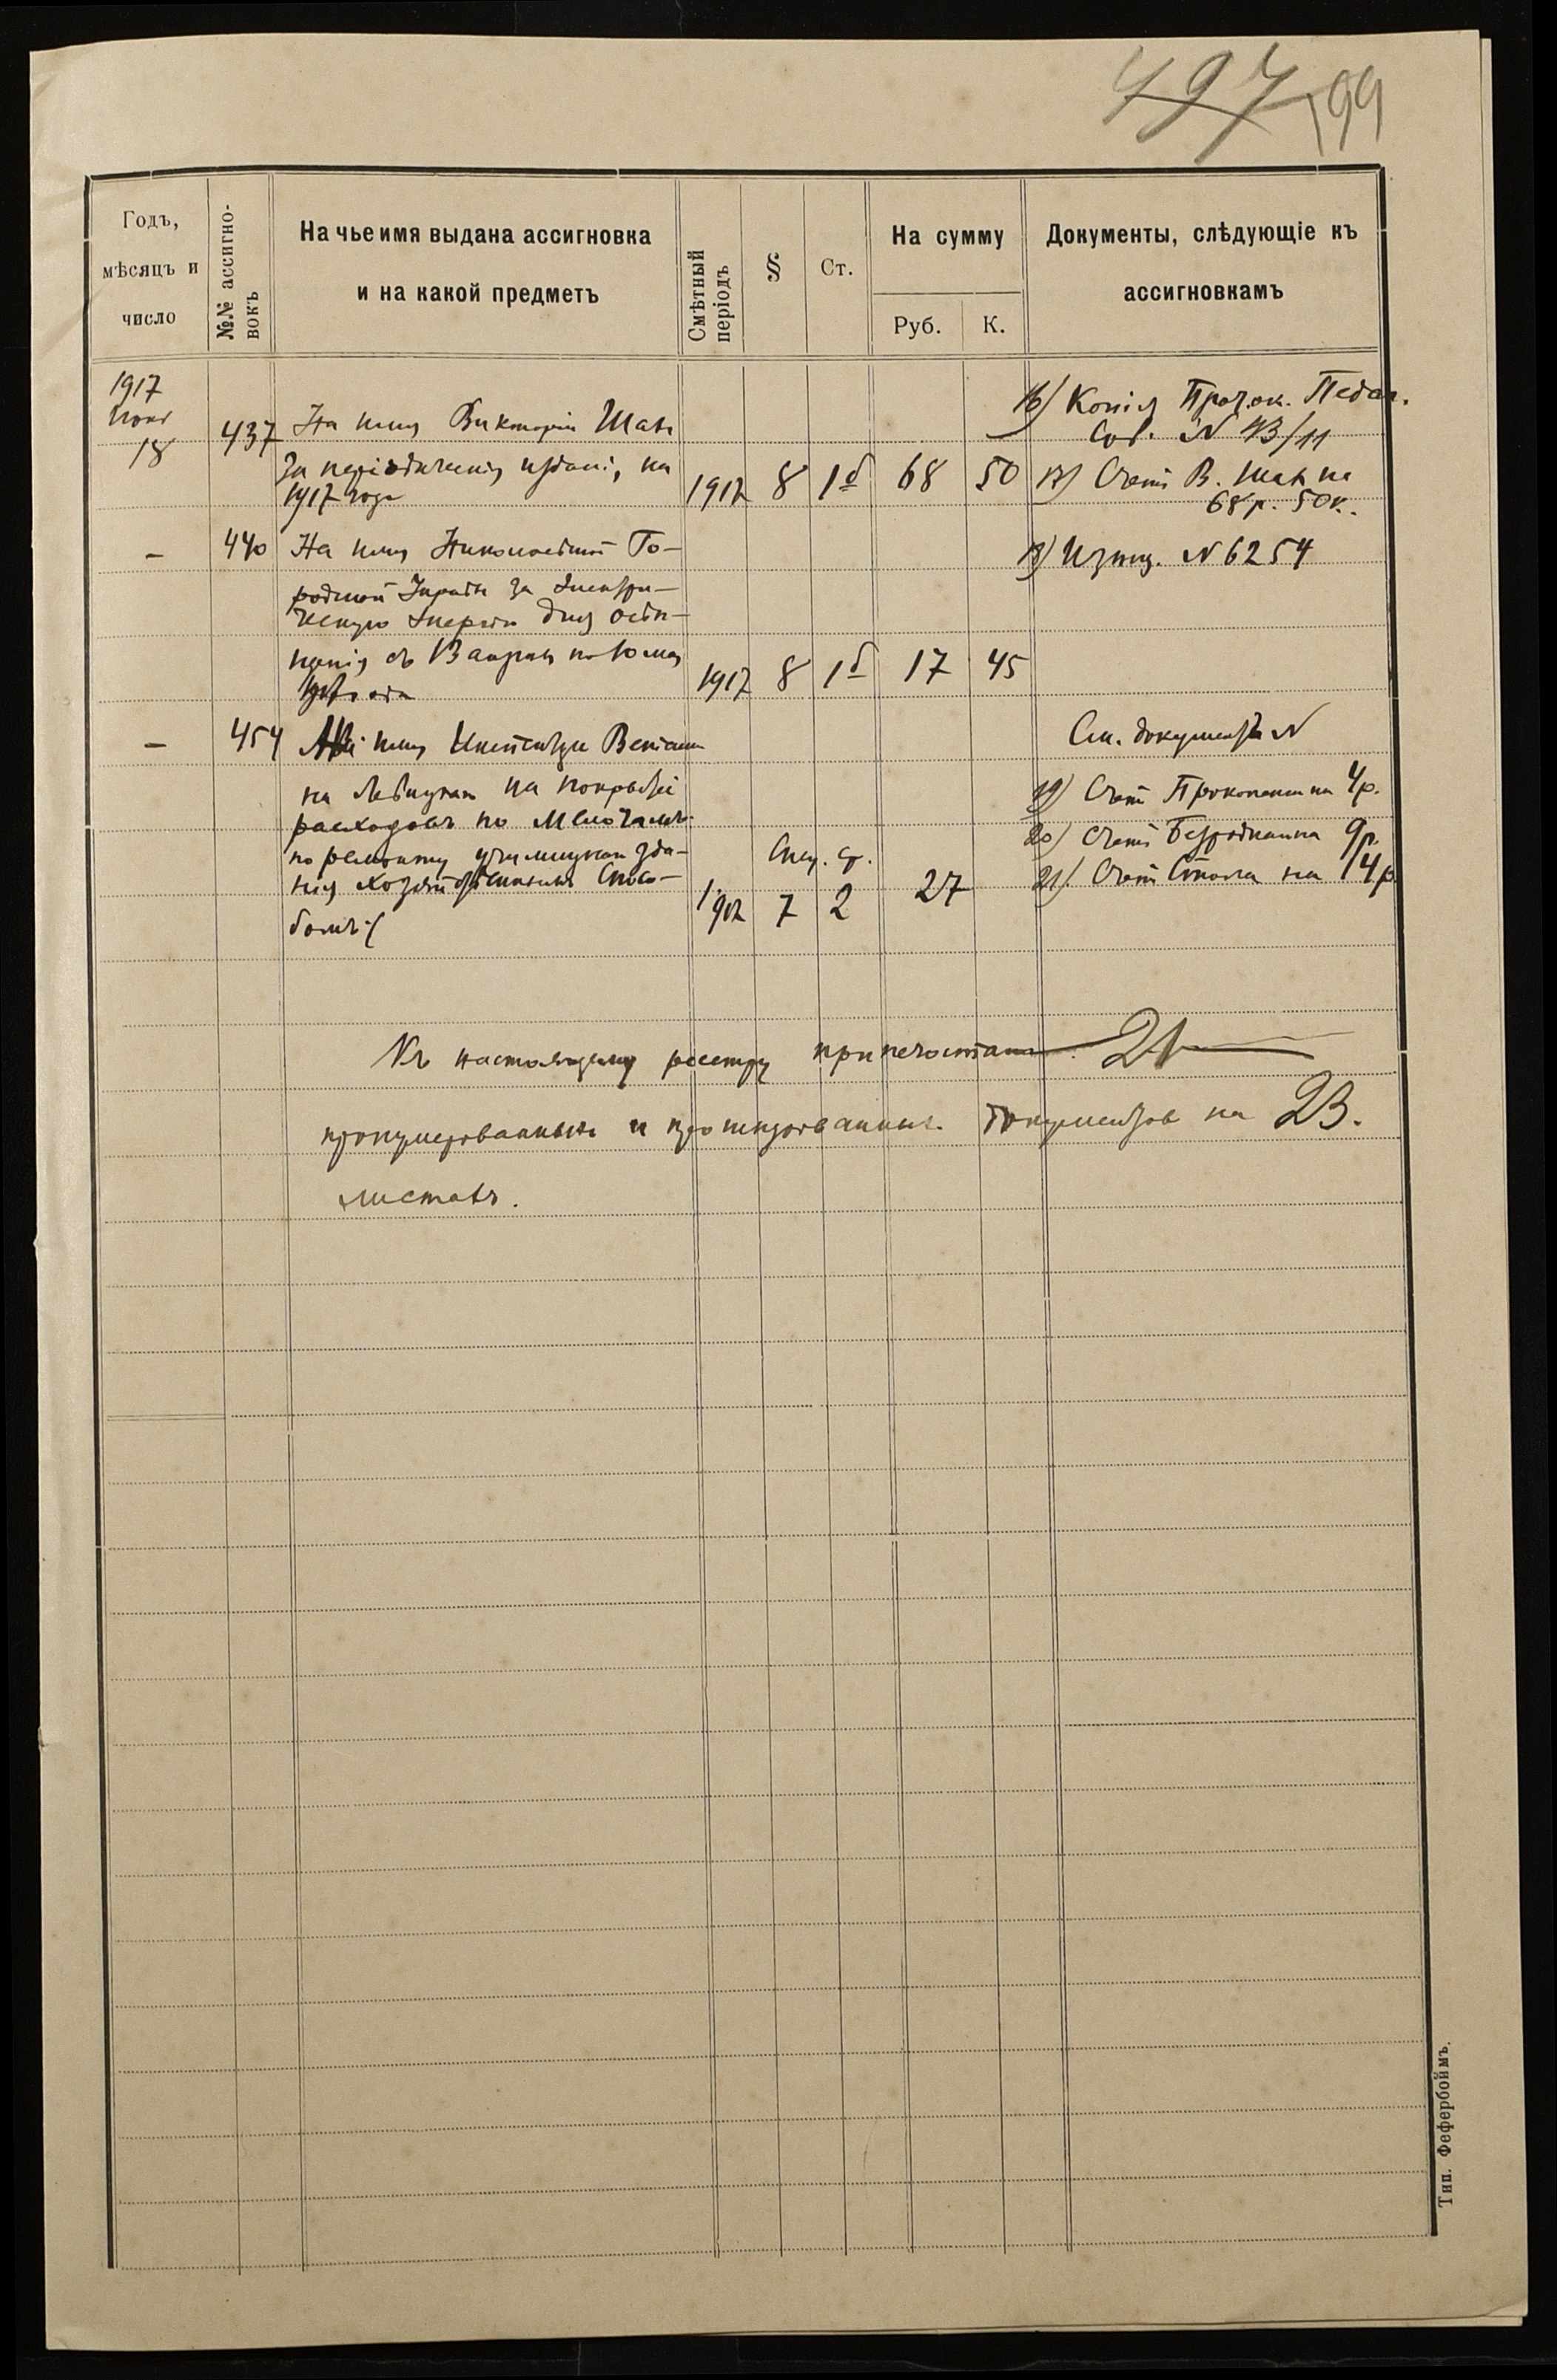 497 199
Годъ,
мѣсяцъ и
число
№№ ассигно-
вокъ
На чье имя выдана ассигновка
и на какой предметъ
Смѣтный
періодъ
§
Ст.
На сумму
Руб. К.
Документы, слѣдующіе къ
ассигновкамъ
1917
18
437
На имя Викторіи Шавъ
за періодическія изданія, на
1917 года
1917 8 1б 68 50
16) Копія Проток. Педаг.
Сов. N 13/11
17) Счетъ В. Шавъ на
68 р. 50 к.
— 440
На имя Николаевской Го-
родской Управы за Электри-
ческую Энергію для освѣ-
щенія съ 13 апрѣля по 10 мая
1917 8 1б 17 45
18) N 6254
— 454
имя
на покрытіе
расходовъ по мелочамъ
по ремонту зда-
нія Хозяйственнымъ Спосо-
бомъ
Спец. ср.
1917 7 2 27
См. документъ N
19) Счетъ на 4 р.
20) Счетъ на 9 р.
21) Счетъ на 14 р.
Къ настоящему реестру 21
пронумерованныхъ и прошнурованныхъ документовъ на 23.
листахъ.
Тип. Фефербоймъ.